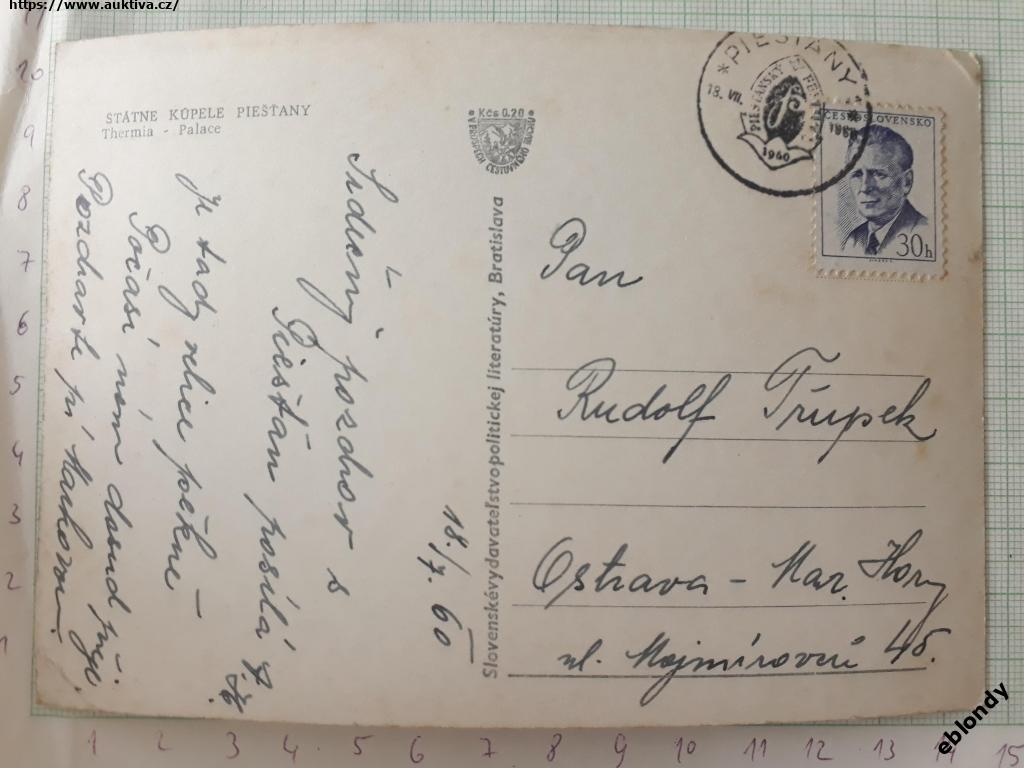 https://www.auktiva.cz/
STÁTNE KÚPELE PIEŠŤANY
Thermia - Palace
Kčs 0.20
* PIEŠŤANY *
PIEŠŤANSKÝ
18. VII.
1960
ČESKOSLOVENSKO
30h
18./7. 60
Srdečný pozdrav s
Piešťan posílá
Je tady velice pěkně –
Počasí nám dosud přeje.
Pozdravte pí
Slovenské vydavateľstvo politickej literatúry, Bratislava
Pan
Rudolf Třupek
Ostrava – Mar. Hory
ul. Mojmírovců 45.
10
9
8
7
6
5
4
3
2
1
1 2 3 4 5 6 7 8 9 10 11 12 13 14 15
eblondy